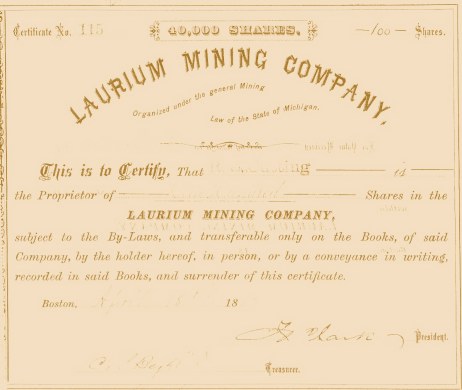 Certificate No. 115
40,000 SHARES.
—100— Shares.
LAURIUM MINING COMPANY,
Organized under the general Mining
Law of the State of Michigan.
This is to Certify, That
the Proprietor of Shares in the
LAURIUM MINING COMPANY,
subject to the By-Laws, and transferable only on the Books, of said
Company, by the holder hereof, in person, or by a conveyance in writing,
recorded in said Books, and surrender of this certificate.
Boston, 18
President.
Treasurer.